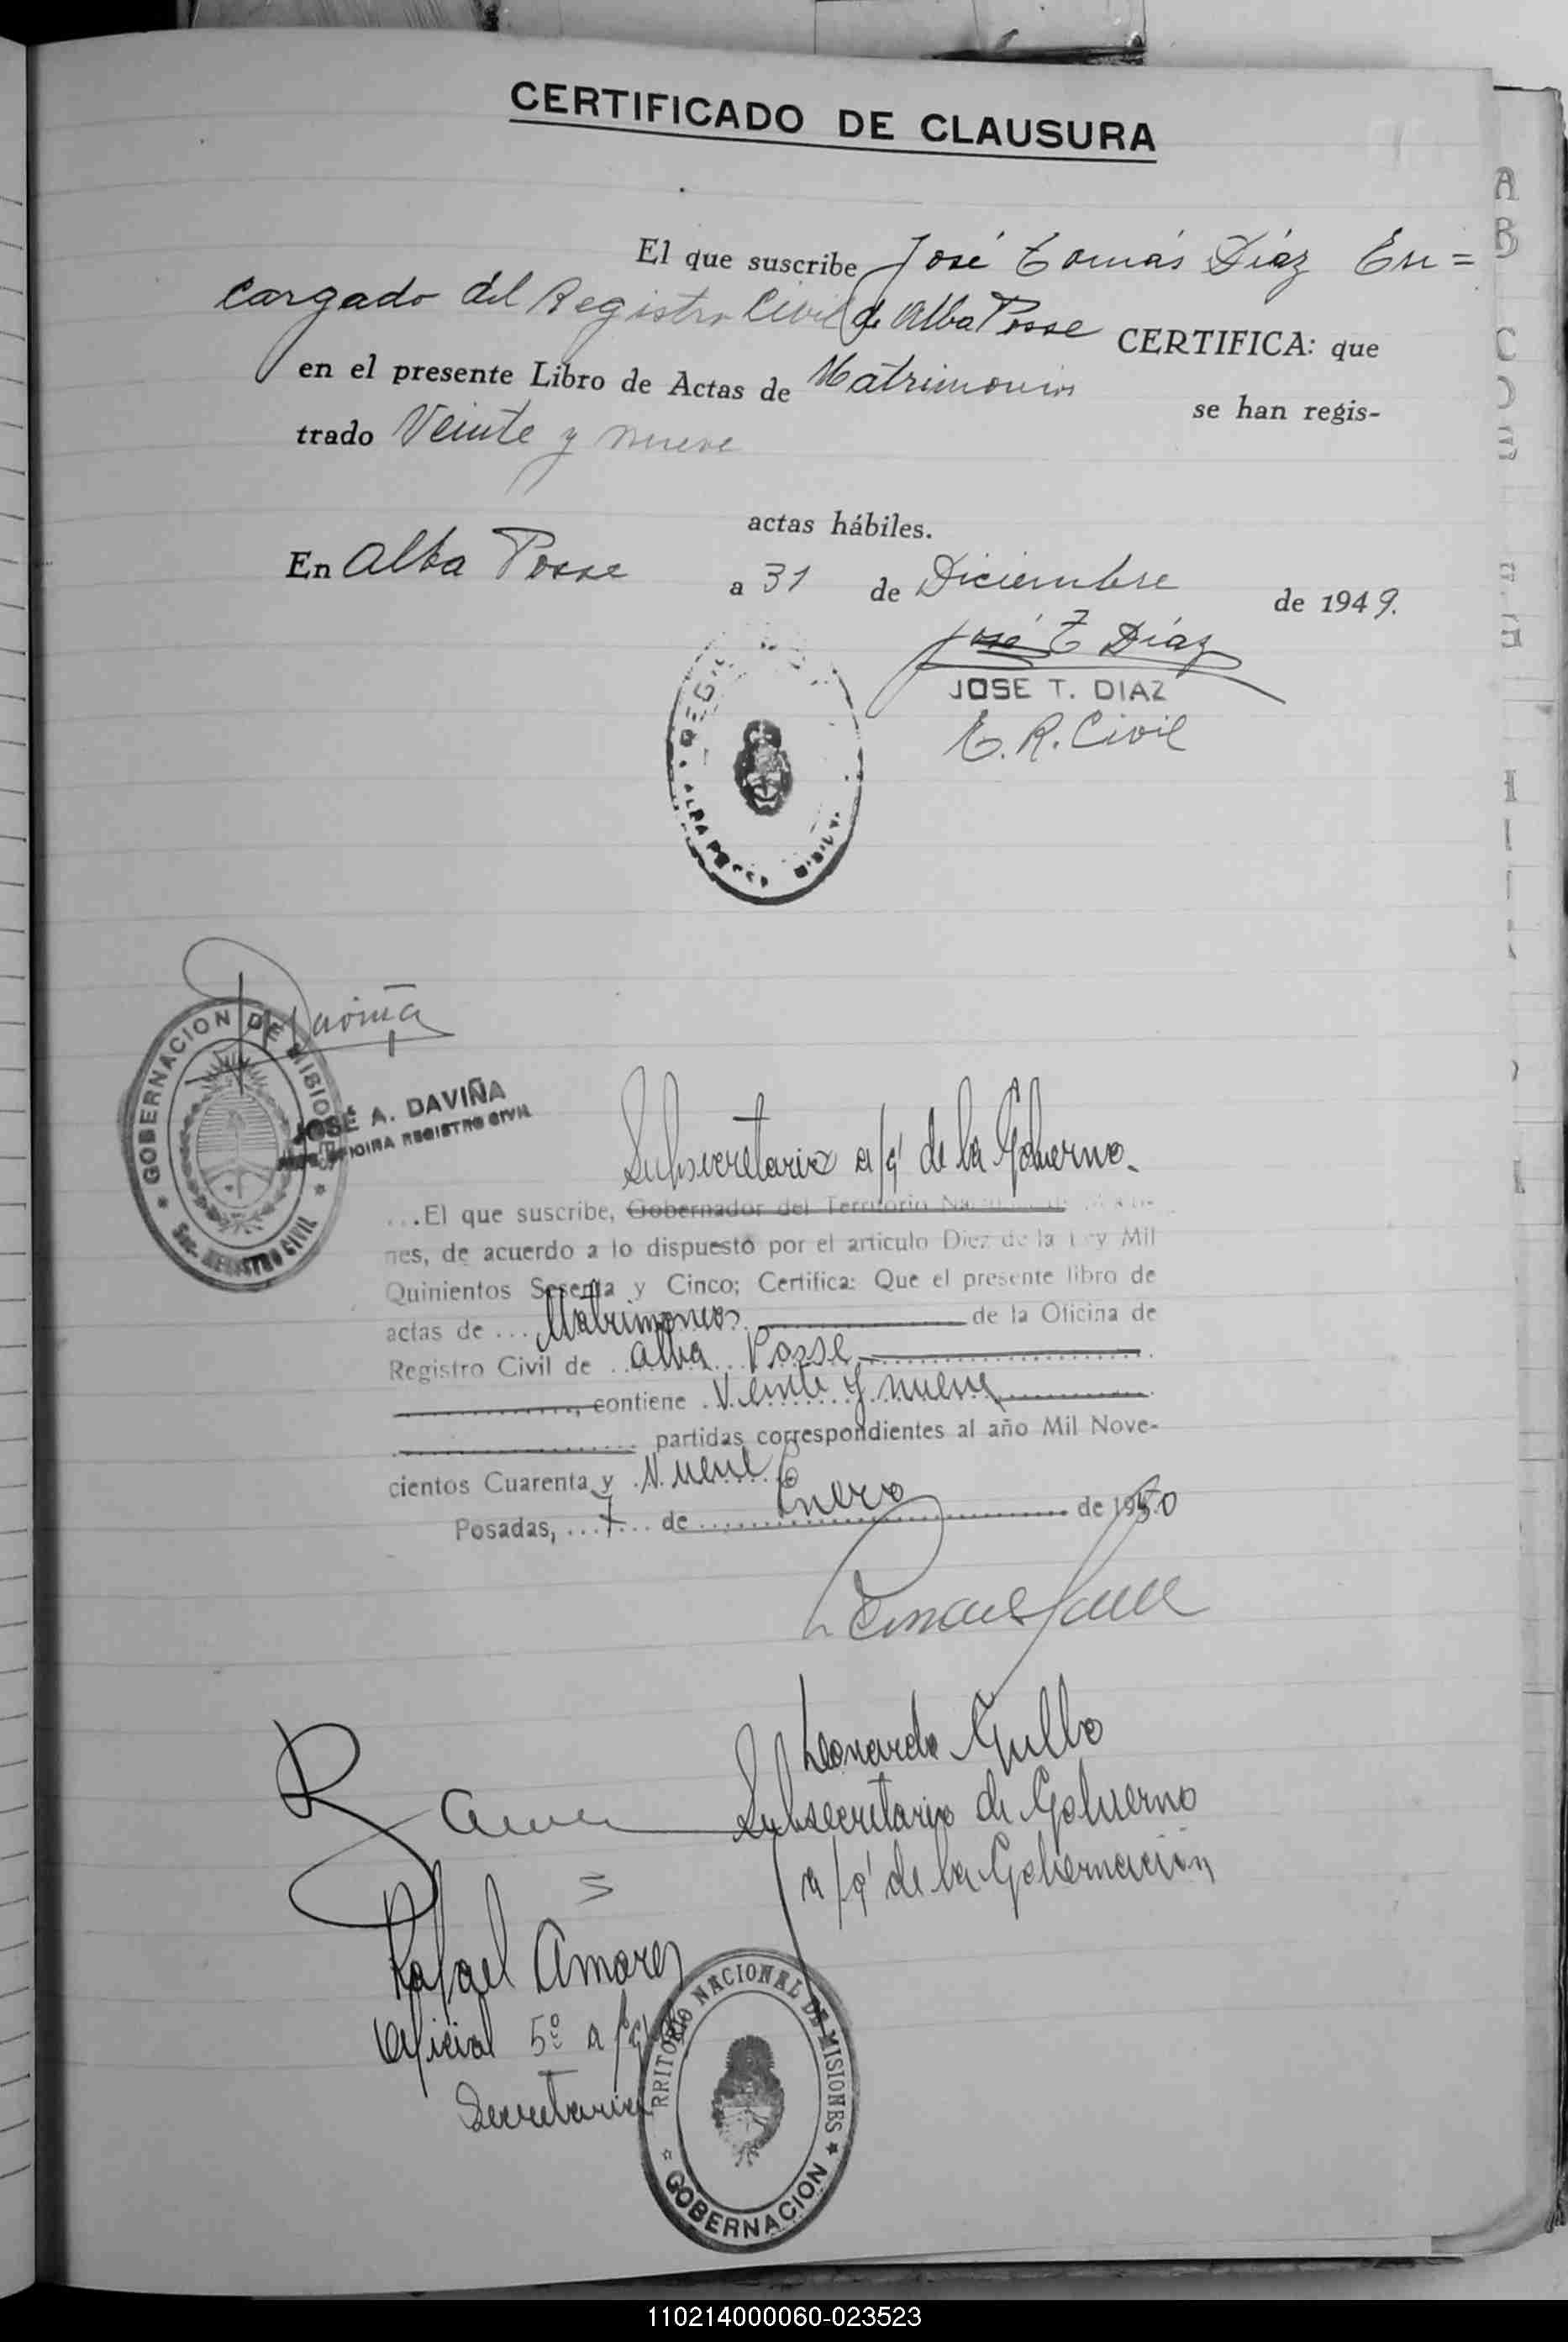 CERTIFICADO DE CLAUSURA
El que suscribe José Tomás Díaz En=
cargado del Registro Civil de Alba Posse CERTIFICA: que
en el presente Libro de Actas de Matrimonios se han regis-
trado Veinte y nueve
actas hábiles.
En Alba Posse a 31 de Diciembre de 1949.
José T Díaz
JOSE T. DIAZ
E. R. Civil
ALBA POSSE
Daviña
GOBERNACION DE MISIONES
JOSÉ A. DAVIÑA
REGISTRO CIVIL
SEC. REGISTRO CIVIL
Subsecretario a/c de la Goberno.
...El que suscribe, Gobernador del Territorio
nes, de acuerdo a lo dispuesto por el articulo Diez de la Ley Mil
Quinientos Sesenta y Cinco; Certifica: Que el presente libro de
actas de ... Matrimonios de la Oficina de
Registro Civil de Alba Posse
, contiene Veinte y nueve
partidas correspondientes al año Mil Nove-
cientos Cuarenta y Nueve
Posadas, ...7... de Enero de 1950
Leonardo Gullo
Subsecretario de Goberno
a/c de la Gobernación
Rafael Amores
Oficial 5º a/c
Secretaria
RRITORIO NACIONAL DE MISIONES
GOBERNACION
A
B
C
D
E
110214000060-023523